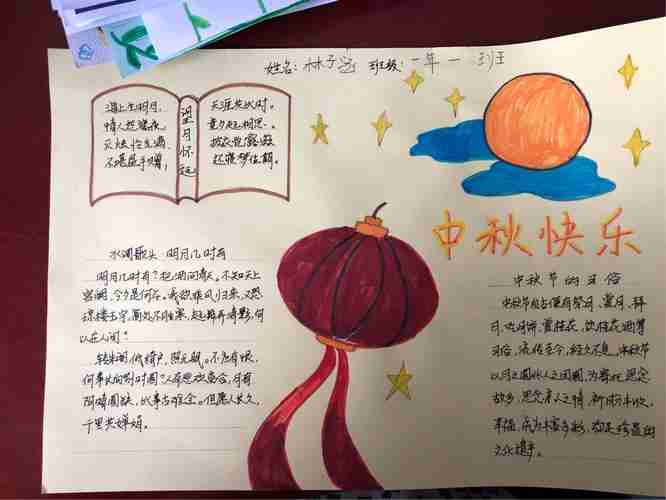 姓名：林子涵 班级：一年一班
海上生明月，
情人怨遥夜，
灭烛怜光满，
不堪盈手赠，
望月怀远
天涯共此时。
竟夕起相思。
披衣觉露滋
还寝梦佳期。
中秋快乐
水调歌头·明月几时有
明月几时有？把酒问青天。不知天上
宫阙，今夕是何年。我欲乘风归来，又恐
琼楼玉宇，高处不胜寒，起舞弄清影，何
似在人间？
转朱阁，低绮户，照无眠。不应有恨，
何事长向别时圆？人有悲欢离合，月有
阴晴圆缺，此事古难全。但愿人长久，
千里共婵娟。
中秋节的习俗
中秋节自古便有祭月、赏月、拜
月、吃月饼、赏桂花、饮桂花酒等
习俗，流传至今，经久不息。中秋节
以月之圆兆人之团圆，为寄托思念
故乡，思念亲人之情，祈盼丰收、
幸福，成为丰富多彩、弥足珍贵的
文化遗产。